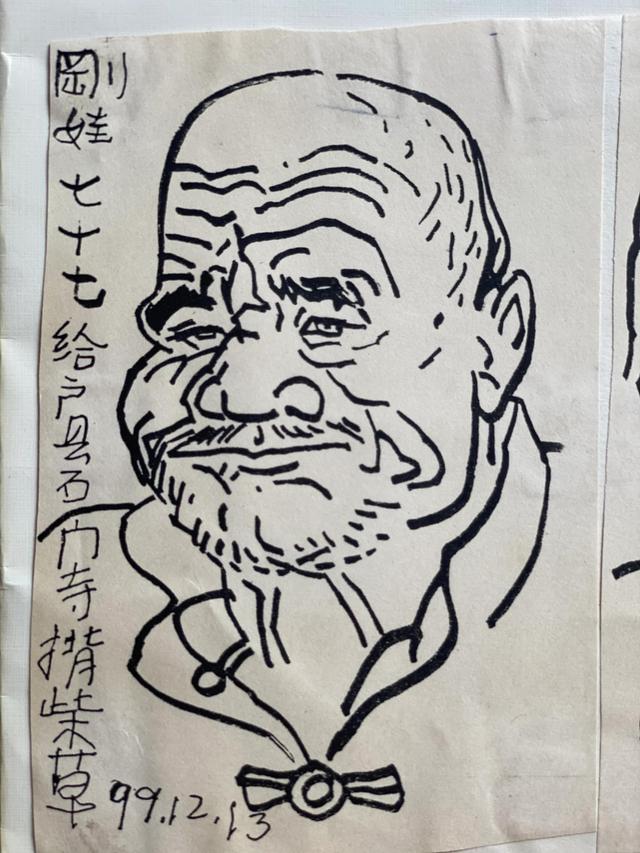 剛娃七十七给户县石门寺揹柴草
99.12.13